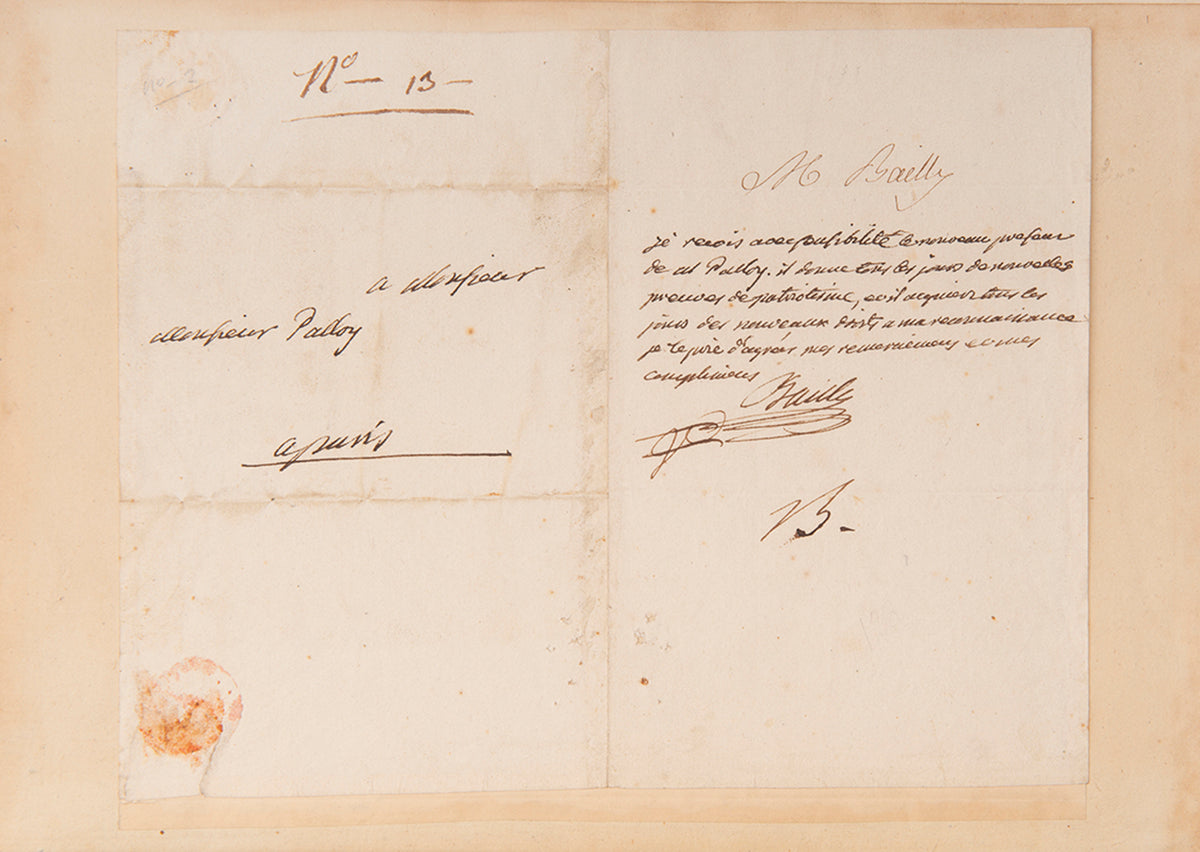 no 2
No — 13 —
a Monsieur
Monsieur Palloy
a paris
M Bailly
je reçois avec sensibilité le nouveau present
de M Palloy. il donne tous les jours de nouvelles
preuves de patriotisme, et il acquiert tous les
jours des nouveaux droits a ma reconnaissance
je le prie d'agréer mes remerciemens et mes
complimens
Bailly
B.